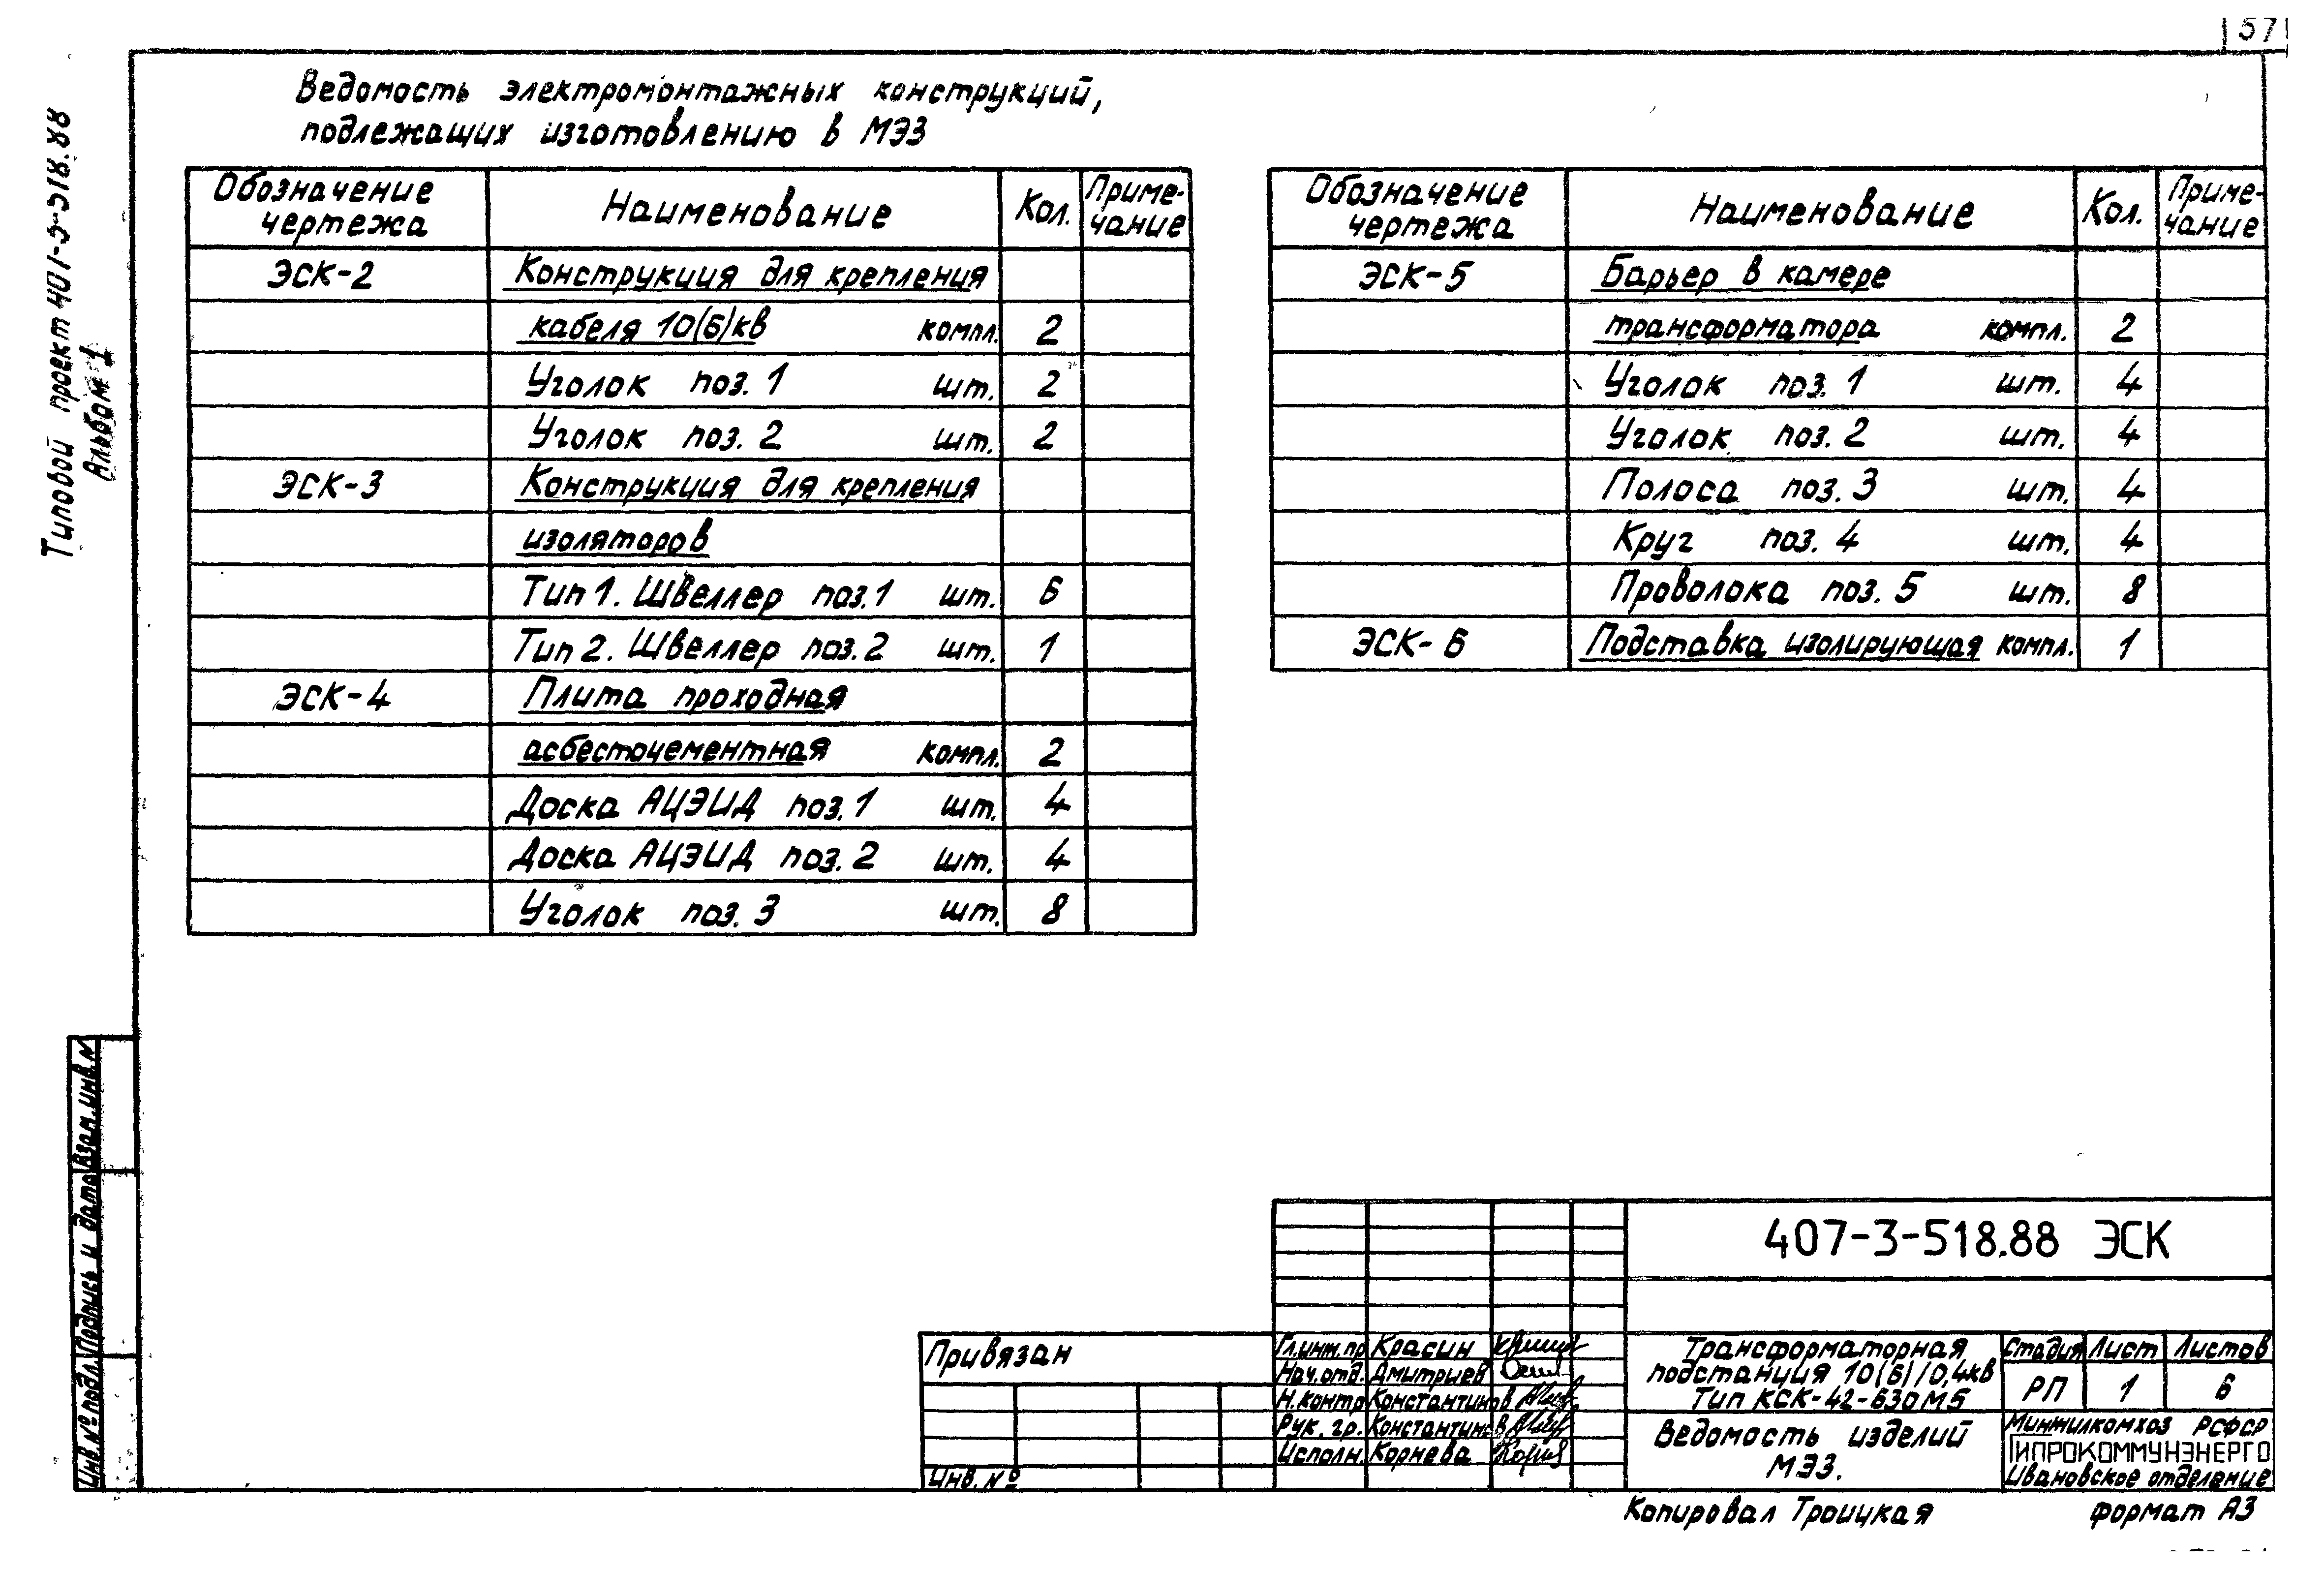 57
Типовой проект 407-3-518.88
Альбом 1
Ведомость электромонтажных конструкций,
подлежащих изготовлению в МЭЗ
Обозначение чертежа Наименование Кол. Приме-чание
ЭСК-2 Конструкция для крепления
кабеля 10(6)кв компл. 2
Уголок поз. 1 шт. 2
Уголок поз. 2 шт. 2
ЭСК-3 Конструкция для крепления
изоляторов
Тип 1. Швеллер поз.1 шт. 6
Тип 2. Швеллер поз. 2 шт. 1
ЭСК-4 Плита проходная
асбестоцементная компл. 2
Доска АЦЭИД поз. 1 шт. 4
Доска АЦЭИД поз. 2 шт. 4
Уголок поз. 3 шт. 8
Обозначение чертежа Наименование Кол. Приме-чание
ЭСК-5 Барьер в камере
трансформатора компл. 2
Уголок поз. 1 шт. 4
Уголок поз. 2 шт. 4
Полоса поз. 3 шт. 4
Круг поз. 4 шт. 4
Проволока поз. 5 шт. 8
ЭСК-6 Подставка изолирующая компл. 1
Взам.инв.N
Подпись и дата
Инв.№подл.
407-3-518.88 ЭСК
Привязан
Инв.№
Гл.инж.пр Красин
Нач.отд. Дмитриев
Н.контр Константинов
Рук. гр. Константинов
Исполн. Корнева
Трансформаторная
подстанция 10(6)/0,4кв
Тип КСК-42-630М5
Стадия Лист Листов
РП 1 6
Ведомость изделий
МЭЗ.
Минжилкомхоз РСФСР
ГИПРОКОММУНЭНЕРГО
Ивановское отделение
Копировал Троицкая
формат А3